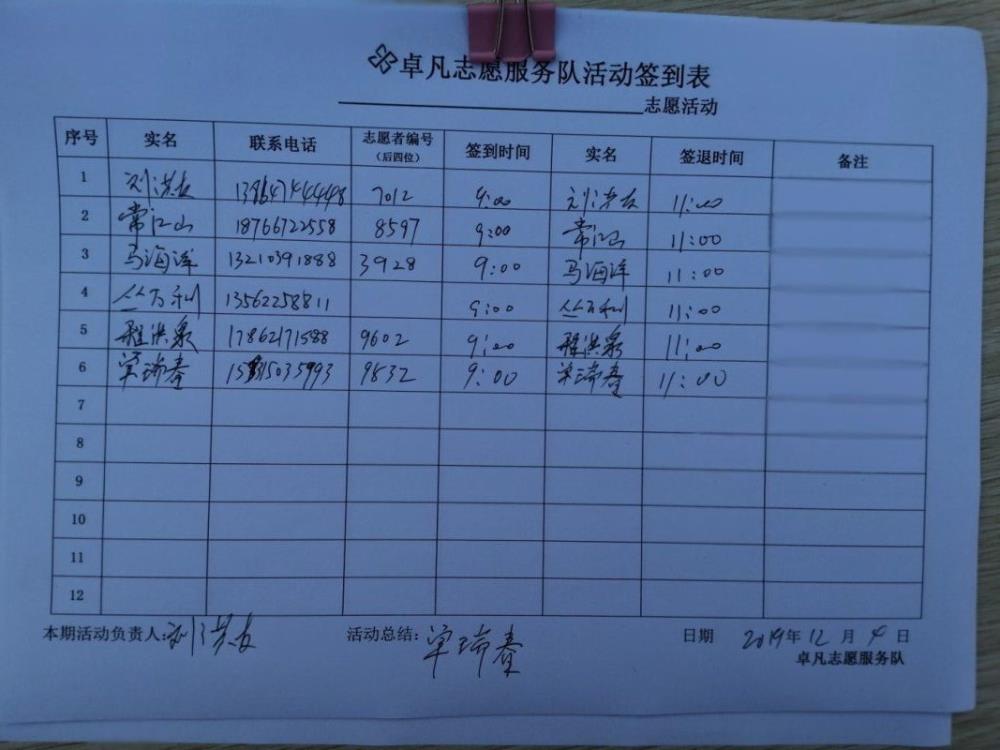 卓凡志愿服务队活动签到表
志愿活动
序号 实名 联系电话 志愿者编号(后四位) 签到时间 实名 签退时间 备注
1 刘洪友 7012 9:00 刘洪友 11:00
2 常江山 18766722558 8597 9:00 常江山 11:00
3 马海洋 13210391888 3928 9:00 马海洋 11:00
4 丛万利 13562258811 9:00 丛万利 11:00
5 程洪泉 17862171588 9602 9:00 程洪泉 11:00
6 瑞春 9832 9:00 瑞春 11:00
7
8
9
10
11
12
本期活动负责人:刘洪友 活动总结: 瑞春 日期 2019年12月4日
卓凡志愿服务队